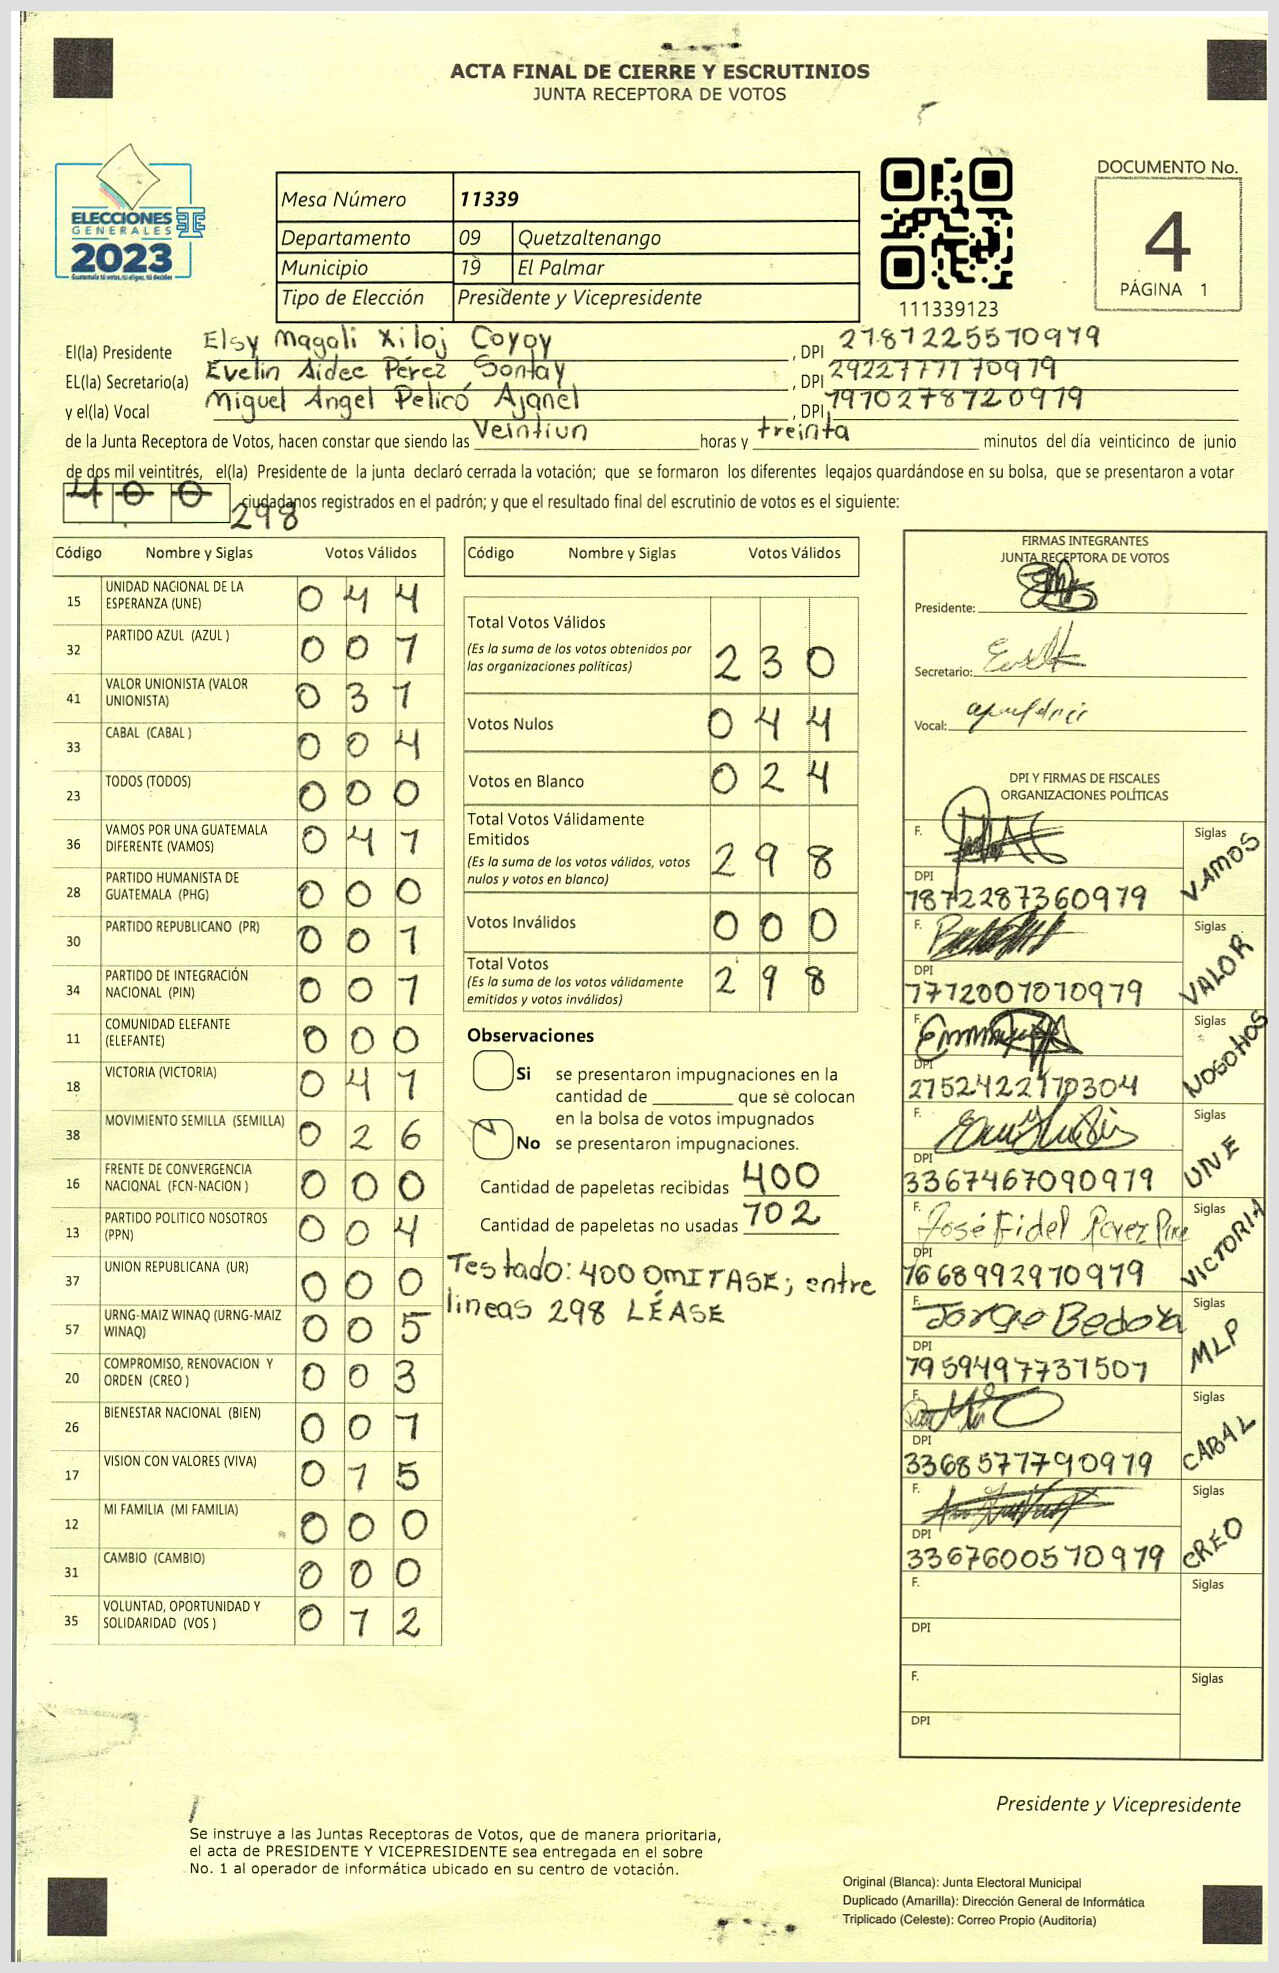 ACTA FINAL DE CIERRE Y ESCRUTINIOS
JUNTA RECEPTORA DE VOTOS
ELECCIONES
GENERALES
2023
Guatemala tú votas, tú eliges, tú decides
Mesa Número 11339
Departamento 09 Quetzaltenango
Municipio 19 El Palmar
Tipo de Elección Presidente y Vicepresidente
111339123
DOCUMENTO No.
4
PÁGINA 1
El(la) Presidente Elsy Magali Xiloj Coyoy, DPI 2787225570979
EL(la) Secretario(a) Evelin Aidee Pérez Sontay, DPI 2922777770979
y el(la) Vocal Miguel Angel Pelicó Ajanel, DPI 7970278720979
de la Junta Receptora de Votos, hacen constar que siendo las Veintiun horas y treinta minutos del día veinticinco de junio
de dos mil veintitrés, el(la) Presidente de la junta declaró cerrada la votación; que se formaron los diferentes legajos quardándose en su bolsa, que se presentaron a votar
400 ciudadanos registrados en el padrón; y que el resultado final del escrutinio de votos es el siguiente:
298
Código Nombre y Siglas Votos Válidos
15 UNIDAD NACIONAL DE LA ESPERANZA (UNE) 044
32 PARTIDO AZUL (AZUL ) 007
41 VALOR UNIONISTA (VALOR UNIONISTA) 037
33 CABAL (CABAL ) 004
23 TODOS (TODOS) 000
36 VAMOS POR UNA GUATEMALA DIFERENTE (VAMOS) 047
28 PARTIDO HUMANISTA DE GUATEMALA (PHG) 000
30 PARTIDO REPUBLICANO (PR) 007
34 PARTIDO DE INTEGRACIÓN NACIONAL (PIN) 007
11 COMUNIDAD ELEFANTE (ELEFANTE) 000
18 VICTORIA (VICTORIA) 047
38 MOVIMIENTO SEMILLA (SEMILLA) 026
16 FRENTE DE CONVERGENCIA NACIONAL (FCN-NACION ) 000
13 PARTIDO POLITICO NOSOTROS (PPN) 004
37 UNION REPUBLICANA (UR) 000
57 URNG-MAIZ WINAQ (URNG-MAIZ WINAQ) 005
20 COMPROMISO, RENOVACION Y ORDEN (CREO ) 003
26 BIENESTAR NACIONAL (BIEN) 007
17 VISION CON VALORES (VIVA) 075
12 MI FAMILIA (MI FAMILIA) 000
31 CAMBIO (CAMBIO) 000
35 VOLUNTAD, OPORTUNIDAD Y SOLIDARIDAD (VOS ) 072
Código Nombre y Siglas Votos Válidos
Total Votos Válidos 230
(Es la suma de los votos obtenidos por
las organizaciones políticas)
Votos Nulos 044
Votos en Blanco 024
Total Votos Válidamente
Emitidos 298
(Es la suma de los votos válidos, votos
nulos y votos en blanco)
Votos Inválidos 000
Total Votos 298
(Es la suma de los votos válidamente
emitidos y votos inválidos)
Observaciones
Si se presentaron impugnaciones en la
cantidad de ________ que se colocan
en la bolsa de votos impugnados
No se presentaron impugnaciones.
Cantidad de papeletas recibidas 400
Cantidad de papeletas no usadas 702
Testado: 400 OMITASE; entre
lineas 298 LÉASE
FIRMAS INTEGRANTES
JUNTA RECEPTORA DE VOTOS
Presidente:
Secretario:
Vocal:
DPI Y FIRMAS DE FISCALES
ORGANIZACIONES POLÍTICAS
F. Siglas VAMOS
DPI 7872287360979
F. Siglas VALOR
DPI 7772007070979
F. Siglas NOSOTROS
DPI 2752422770304
F. Siglas UNE
DPI 3367467090979
F. José Fidel Perez Siglas VICTORIA
DPI 7668992970979
F. Jorge Bedoya Siglas MLP
DPI 7959497737507
F. Siglas CABAL
DPI 3368577790979
F. Siglas CREO
DPI 3367600570979
F. Siglas
DPI
F. Siglas
DPI
Presidente y Vicepresidente
Se instruye a las Juntas Receptoras de Votos, que de manera prioritaria,
el acta de PRESIDENTE Y VICEPRESIDENTE sea entregada en el sobre
No. 1 al operador de informática ubicado en su centro de votación.
Original (Blanca): Junta Electoral Municipal
Duplicado (Amarilla): Dirección General de Informática
Triplicado (Celeste): Correo Propio (Auditoría)